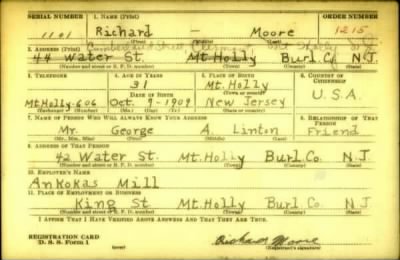 SERIAL NUMBER 1. NAME (Print) ORDER NUMBER
1101 Richard - Moore 1215
2. ADDRESS (Print)
44 Water St. Mt. Holly Burl. Co. N.J.
(Number and street or R. F. D. number) (Town) (County) (State)
3. TELEPHONE 4. AGE IN YEARS 5. PLACE OF BIRTH 6. COUNTRY OF CITIZENSHIP
31 Mt. Holly
DATE OF BIRTH (Town or county)
Mt. Holly-606 Oct. 9-1909 New Jersey U.S.A.
(Exchange) (Number) (Mo.) (Day) (Yr.) (State or country)
7. NAME OF PERSON WHO WILL ALWAYS KNOW YOUR ADDRESS 8. RELATIONSHIP OF THAT PERSON
Mr. George A. Linton Friend
(Mr., Mrs., Miss) (First) (Middle) (Last)
9. ADDRESS OF THAT PERSON
42 Water St. Mt. Holly Burl. Co. N.J.
(Number and street or R. F. D. number) (Town) (County) (State)
10. EMPLOYER'S NAME
Ankokas Mill
11. PLACE OF EMPLOYMENT OR BUSINESS
King St Mt. Holly Burl. Co. N.J.
(Number and street or R. F. D. number) (Town) (County) (State)
I AFFIRM THAT I HAVE VERIFIED ABOVE ANSWERS AND THAT THEY ARE TRUE.
REGISTRATION CARD
D. S. S. Form 1 Richard Moore
(Registrant's signature)